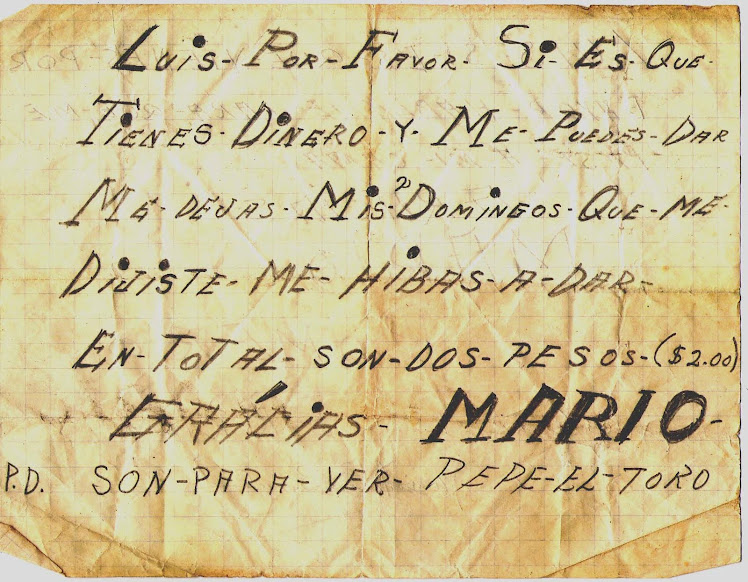 Luis - Por - Favor - Si - Es - Que -
Tienes - Dinero - Y - Me - Puedes - Dar
Mé - dejas - Mis 2 Domingos - Que - me -
Dijiste - me - hibas - a - dar -
En - Total - son - dos - pesos - ($2.00)
Grácias - MARIO -
P.D. SON - PARA - VER - PEPE - EL - TORO